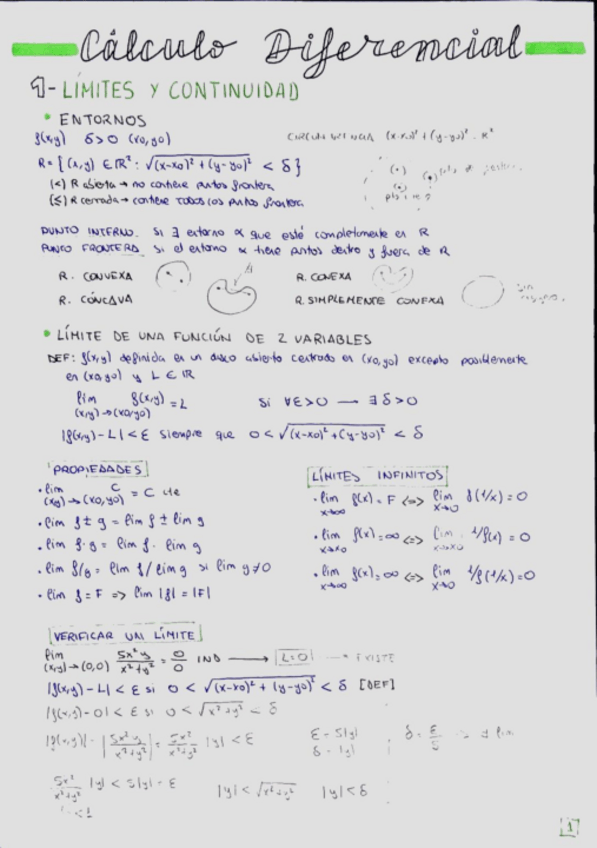 Cálculo Diferencial
1- LÍMITES Y CONTINUIDAD
• ENTORNOS
f(x,y) δ>0 (x0,y0)
(x-x0)² + (y-y0)² = R²
R = {(x,y) ∈ ℝ² : √(x-x0)² + (y-y0)² < δ}
(<) R abierta → no contiene puntos frontera
(≤) R cerrada → contiene todos los puntos frontera
PUNTO INTERNO. Si ∃ entorno α que esté completamente en R
PUNTO FRONTERA. Si el entorno α tiene puntos dentro y fuera de R
R. CONVEXA
R. CONEXA
R. CÓNCAVA
R. SIMPLEMENTE CONEXA
• LÍMITE DE UNA FUNCIÓN DE 2 VARIABLES
DEF: f(x,y) definida en un disco abierto centrado en (x0,y0) excepto posiblemente
en (x0,y0) y L ∈ ℝ
lim (x,y)→(x0,y0) f(x,y) = L si ∀ε>0 — ∃δ>0
|f(x,y)-L| < ε siempre que 0 < √(x-x0)² + (y-y0)² < δ
PROPIEDADES
• lim (x,y)→(x0,y0) C = C cte
• lim f ± g = lim f ± lim g
• lim f·g = lim f · lim g
• lim f/g = lim f / lim g si lim g ≠ 0
• lim f = F => lim |f| = |F|
LÍMITES INFINITOS
• lim x→∞ f(x) = F <=> lim x→0 f(1/x) = 0
• lim x→x0 f(x) = ∞ <=> lim x→x0 1/f(x) = 0
• lim x→∞ f(x) = ∞ <=> lim x→0 1/f(1/x) = 0
VERIFICAR UN LÍMITE
lim (x,y)→(0,0) 5x²y/x²+y² = 0/0 IND → L=0 → EXISTE
|f(x,y)-L| < ε si 0 < √(x-x0)² + (y-y0)² < δ [DEF]
|f(x,y)-0| < ε si 0 < √x²+y² < δ
|f(x,y)| = |5x²y/x²+y²| = 5x²/x²+y² |y| < ε
ε = 5|y|
δ = |y|
δ = ε/5
5x²/x²+y² |y| < 5|y| = ε
|y| < √x²+y² |y| < δ
1